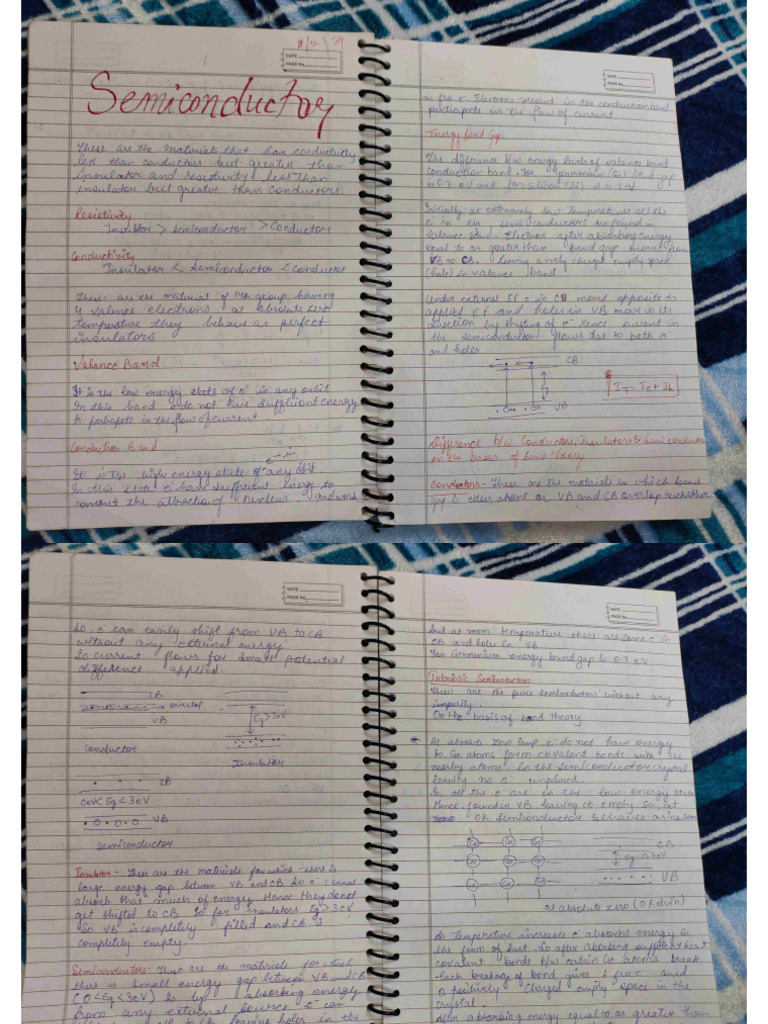 DATE
PAGE No.
Semiconductor
These are the materials that have conductivity
less than conductors but greater than
Insulator and resistivity less than
insulator but greater than conductors
Resistivity
Insulator > Semiconductor > Conductor
Conductivity
Insulator < Semiconductor < conductor
These are the material of 14th group having
4 valence electrons at absolute zero
temperature they behave as perfect
insulators
Valance Band
It is the low energy state of e⁻ in any orbit
In this band e⁻ do not have sufficient energy
to participate in the flow of current
Conduction Band
e⁻ in
It is the high energy state of any orbit.
In this state e⁻ have sufficient energy to
the attraction of nucleus and work
DATE
PAGE No.
as free e⁻ Electrons present in the conduction band
participate in the flow of current
Energy Band Gap
The difference b/w energy levels of valance band
conduction band. For germanium (Ge) band gap
is 0.7 eV and for silicon (Si)
Initially at extremely low temperature all the
e⁻ in the semi conductors are found in
valance band. Electron after absorbing energy
equal to or greater than band gap moves from
VB to CB. Leaving a +vely charged empty space
(hole) in valance band
Under external EF e⁻ in CB moves opposite to
applied EF and holes in VB move in its
direction by shifting of e⁻ Hence current in
the semiconductor flows due to both e⁻
and holes
CB
Eg
VB
Difference b/w Conductors, Insulators & Semi conductor
on the basis of band theory
Conductors - These are the materials in which band
gap is either absent or VB and CB overlap each other
DATE
PAGE No.
So e⁻ can easily shift from VB to CB
without any external energy
So current flows for small potential
difference applied
CB
overlap
VB
Eg > 3eV
Conductor
Insulator
CB
0eV < Eg < 3eV
VB
Semiconductor
Insulator - These are the materials for which there is
large energy gap between VB and CB So e⁻ cannot
absorb that much of energy. Hence they do not
get shifted to CB. So for insulators Eg > 3eV
So VB is completely filled and CB is
completely empty.
Semiconductors - These are the materials for which
there is small energy gap between VB and CB
(0 < Eg < 3eV) So by absorbing energy
from any external source e⁻ can
holes in the
DATE
PAGE No.
but at room temperature there are some e⁻ in
CB and hole in VB
For Germanium energy band gap is 0.7 eV
Intrinsic Semiconductors
These are the pure semiconductors without any
impurity.
On the basis of bond theory
* At absolute zero temp. e⁻ do not have energy
So Ge atoms form covalent bonds with the
nearby atoms In the semiconductor crystal
leaving no e⁻ unpaired
So, all the e⁻ are in the low energy state
Hence found in VB leaving CB empty So, at
0K semiconductor behaves as
Ge Ge Ge
CB
Ge Ge Ge
Eg = 0.7eV
Ge Ge Ge
VB
at absolute zero (0 Kelvin)
As temperature increases e⁻ absorbs energy in
the form of heat. So after absorbing sufficient heat
covalent bonds b/w certain Ge atoms break
Each breakage of bond gives 1 free e⁻ and
a positively charged empty space in the
crystal.
After absorbing energy equal to or greater than